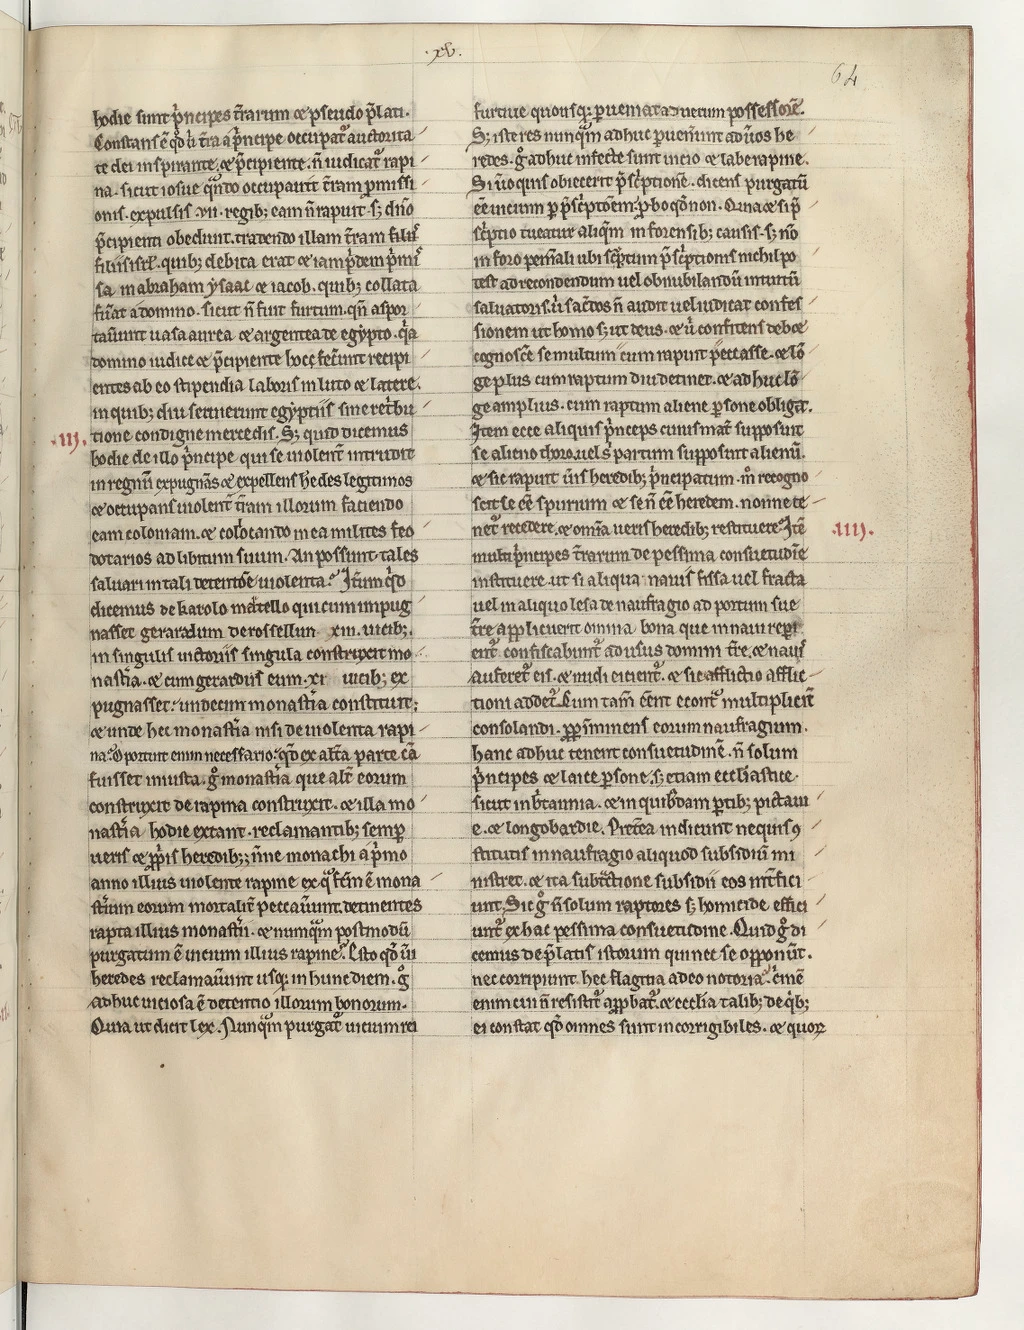 .xv.
64
hodie sunt p̃ncipes t̃rarum ⁊ pseudo p̃lati.
Constans ẽ qd̾ si t̃ra a p̃ncipe occupat᷑ auctorita
te dei inspirante ⁊ p̃cipiente. ñ iudicat᷑ rapi
na. sicut iosue qñdo occupauit t̃ram p̃missi
onis. expulsis .vii. regib; eam ñ rapuit. s; dño
p̃cipienti obediuit. tradendo illam t̃ram filiis
filiis isrl̃. quib; debita erat ⁊ iam p̃dem p̃mis
sa in abraham ysaac ⁊ iacob. quib; collata
fũat a domino. sicut ñ fuit furtum. qñ aspor
tauũnt uasa aurea ⁊ argentea de egypto. q̃a
domino iudice ⁊ p̃cipiente hoc fecẽunt recipi
entes ab eo stipendia laboris in luto ⁊ latere.
in quib; diu seruierunt egyptiis sine ret̃bu
.iij.
tione condigne mercedis. S; quid dicemus
hodie de illo p̃ncipe qui se uiolent̃ intrudit
in regnũ expugnãs ⁊ expellens h̃edes legitimos
⁊ occupans uiolent̃ t̃ram illorum faciendo
eam coloniam. ⁊ collocando in ea milites feo
dotarios ad libitum suum. An possunt tales
saluari in tali detentõe uiolenta? It̃um qid
dicemus de karolo m̃tello qui cum impug
nasset gerardum de rossellun xiii. uicib;.
in singulis uictoriis singula construxit mo
nast̃ia. ⁊ cum gerardus eum .xi uicib; ex
pugnasset: undecim monast̃ia construit;
⁊ unde hec monast̃ia nisi de uiolenta rapi
na? Oportuit enim necessario: qd̾ ex alt̃a parte cã
fuisset iniusta. g̊ monast̃ia que alt̃ eorum
construxit de rapina construxit. ⁊ illa mo
nast̃ia hodie extant. reclamantib; semp̲
ueris ⁊ pp̃iis heredib;; ñne monachi a p̃mo
anno illius uiolente rapine ex q̊ fc̃m ẽ mona
st̃ium eorum mortalit̃ peccauũunt. detinentes
rapta illius monast̃ii. ⁊ numq̃m postmodũ
purgatum ẽ uicium illius rapine? Esto qd̾ ũi
heredes reclamauũint usq; in hunc diem. g̊
adhuc uiciosa ẽ detentio illorum bonorum.
Quia ut dicit lex. Nunq̃m purgat᷑ uicium rei
furtiue quousq; p̲ueniat ad uerum possessorẽ.
S; iste res nunq̃m adhuc p̲ueñunt ad ũos he
redes. g̊ adhuc infecte sunt uicio ⁊ labe rapine.
Si ũo quis obiecerit p̃sc̃ptionẽ. dicens purgatũ
eẽ uicium p̲ p̃sc̃ptõem. p̲bo qd̾ non. Quia ⁊ si p̃
sc̃ptio tueatur aliq̃m in forensib; causis. s; nõ
in foro peñiali ubi sc̃ptum p̃sc̃ptionis nichil po
test ad recondendum uel obnubilandũ intuitũ
saluatoris. ũ sac̃dos ñ audit uel iudicat confes
sionem ut homo s; ut deus. ⁊ ũ confitens debet
cognosc̃e se multum cum rapuit peccasse. ⁊ lõ
ge plus cum raptum diu detinet. ⁊ adhuc lõ
ge amplius. cum raptum aliene p̲sone obligat.
Item ecce aliquis p̃nceps cuius mat̃ supposuit
se alieno thoro. uel s̾ partum supposuit alienũ.
⁊ sic rapuit ũis heredib; p̃ncipatum. m̊ recogno
scit se eẽ spurium ⁊ se ñ eẽ heredem. nonne te
net᷑ recedere. ⁊ om̃ia ueris heredib; restituere? Itẽ
.iiij.
multi p̃ncipes t̃rarum de pessima consuetudĩe
instituere. ut si aliqua nauis fissa uel fracta
uel in aliquo lesa de naufragio ad portum sue
t̃re applicuerit omnia bona que in naui rep̲i
ent᷑ confiscabunt᷑ ad usus domini t̃re. ⁊ nauis
auferet᷑ eis. ⁊ nudi eicient᷑. ⁊ sic afflictio afflic
tioni addet᷑. Cum tam̃ eẽnt econt̃ multiplicit̃
consolandi. pp̲ iminens eorum naufragium.
hanc adhuc tenent consuetudinẽ. ñ solum
p̃ncipes ⁊ laice p̲sone. s; etiam eccl̃iastice.
sicut in b̃tannia. ⁊ in quibꝰdam p̲tib; pictaui
e. ⁊ longobardie. Pret̃ea indicunt ne quis ꝯ
stitutis in naufragio aliquod subsidiũ mi
nistret. ⁊ ita subt̃ctione subsidii eos int̃fici
unt. Sic g̊ ñ solum raptores s; homicide effici
unt᷑ ex hac pessima consuetudine. Quid g̊ di
cemus de p̃latis istorum qui nec se opponũt.
nec corripiunt hec flagitia adeo notoria? c̃inẽ
enim cui ñ resistit᷑ app̲bat᷑. ⁊ eccl̃ia talib; de q̾b;
ei constat qd̾ omnes sunt incorrigibiles. ⁊ quoꝝ